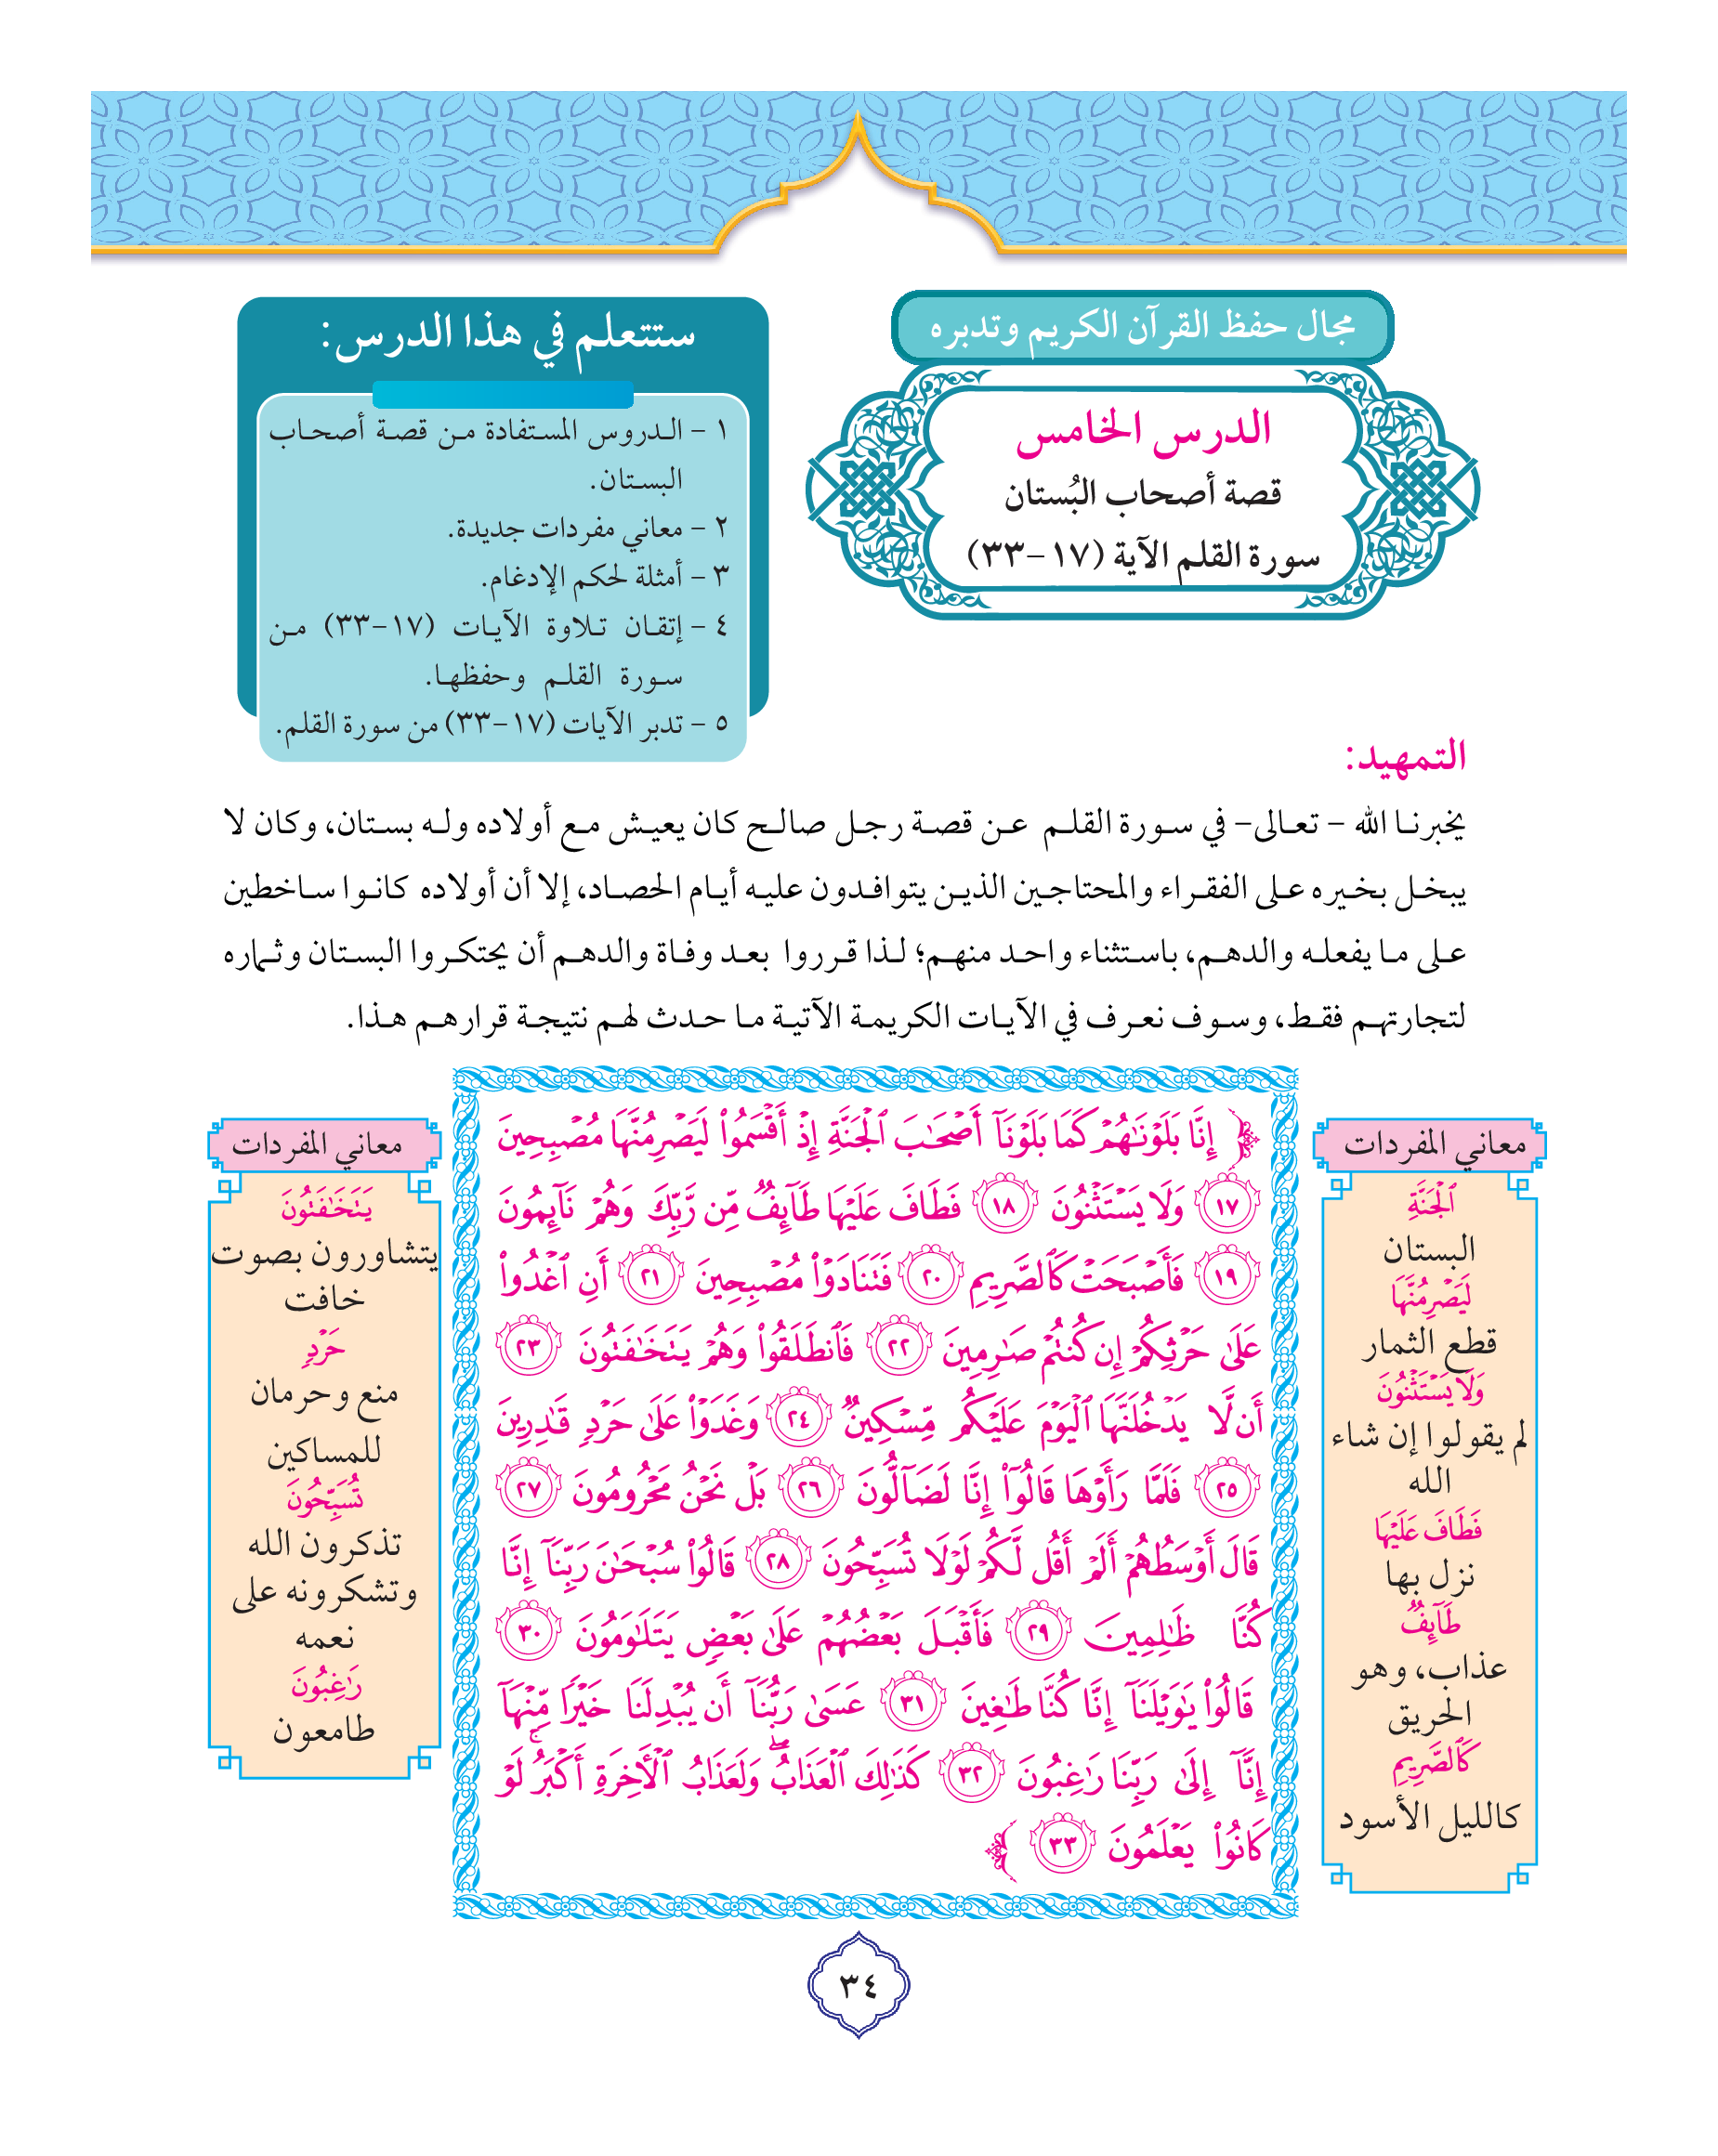 مجال حفظ القرآن الكريم وتدبره
الدرس الخامس
قصة أصحاب البُستان
سورة القلم الآية (١٧-٣٣)
ستتعلم في هذا الدرس:
١ - الدروس المستفادة من قصة أصحاب
البستان.
٢ - معاني مفردات جديدة.
٣ - أمثلة لحكم الإدغام.
٤ - إتقان تلاوة الآيات (١٧-٣٣) من
سورة القلم وحفظها.
٥ - تدبر الآيات (١٧-٣٣) من سورة القلم.
التمهيد:
يخبرنا الله - تعالى- في سورة القلم عن قصة رجل صالح كان يعيش مع أولاده وله بستان، وكان لا
يبخل بخيره على الفقراء والمحتاجين الذين يتوافدون عليه أيام الحصاد، إلا أن أولاده كانوا ساخطين
على ما يفعله والدهم، باستثناء واحد منهم؛ لذا قرروا بعد وفاة والدهم أن يحتكروا البستان وثماره
لتجارتهم فقط، وسوف نعرف في الآيات الكريمة الآتية ما حدث لهم نتيجة قرارهم هذا.
معاني المفردات
ٱلْجَنَّةِ
البستان
لَيَصْرِمُنَّهَا
قطع الثمار
وَلَا يَسْتَثْنُونَ
لم يقولوا إن شاء
الله
فَطَافَ عَلَيْهَا
نزل بها
طَآئِفٌ
عذاب، وهو
الحريق
كَٱلصَّرِيمِ
كالليل الأسود
﴿ إِنَّا بَلَوْنَٰهُمْ كَمَا بَلَوْنَآ أَصْحَٰبَ ٱلْجَنَّةِ إِذْ أَقْسَمُوا۟ لَيَصْرِمُنَّهَا مُصْبِحِينَ
١٧ وَلَا يَسْتَثْنُونَ ١٨ فَطَافَ عَلَيْهَا طَآئِفٌ مِّن رَّبِّكَ وَهُمْ نَآئِمُونَ
١٩ فَأَصْبَحَتْ كَٱلصَّرِيمِ ٢٠ فَتَنَادَوْا۟ مُصْبِحِينَ ٢١ أَنِ ٱغْدُوا۟
عَلَىٰ حَرْثِكُمْ إِن كُنتُمْ صَٰرِمِينَ ٢٢ فَٱنطَلَقُوا۟ وَهُمْ يَتَخَٰفَتُونَ ٢٣
أَن لَّا يَدْخُلَنَّهَا ٱلْيَوْمَ عَلَيْكُم مِّسْكِينٌ ٢٤ وَغَدَوْا۟ عَلَىٰ حَرْدٍ قَٰدِرِينَ
٢٥ فَلَمَّا رَأَوْهَا قَالُوٓا۟ إِنَّا لَضَآلُّونَ ٢٦ بَلْ نَحْنُ مَحْرُومُونَ ٢٧
قَالَ أَوْسَطُهُمْ أَلَمْ أَقُل لَّكُمْ لَوْلَا تُسَبِّحُونَ ٢٨ قَالُوا۟ سُبْحَٰنَ رَبِّنَآ إِنَّا
كُنَّا ظَٰلِمِينَ ٢٩ فَأَقْبَلَ بَعْضُهُمْ عَلَىٰ بَعْضٍ يَتَلَٰوَمُونَ ٣٠
قَالُوا۟ يَٰوَيْلَنَآ إِنَّا كُنَّا طَٰغِينَ ٣١ عَسَىٰ رَبُّنَآ أَن يُبْدِلَنَا خَيْرًا مِّنْهَآ
إِنَّآ إِلَىٰ رَبِّنَا رَٰغِبُونَ ٣٢ كَذَٰلِكَ ٱلْعَذَابُ ۖ وَلَعَذَابُ ٱلْأَخِرَةِ أَكْبَرُ ۚ لَوْ
كَانُوا۟ يَعْلَمُونَ ٣٣ ﴾
معاني المفردات
يَتَخَٰفَتُونَ
يتشاورون بصوت
خافت
حَرْدٍ
منع وحرمان
للمساكين
تُسَبِّحُونَ
تذكرون الله
وتشكرونه على
نعمه
رَٰغِبُونَ
طامعون
٣٤